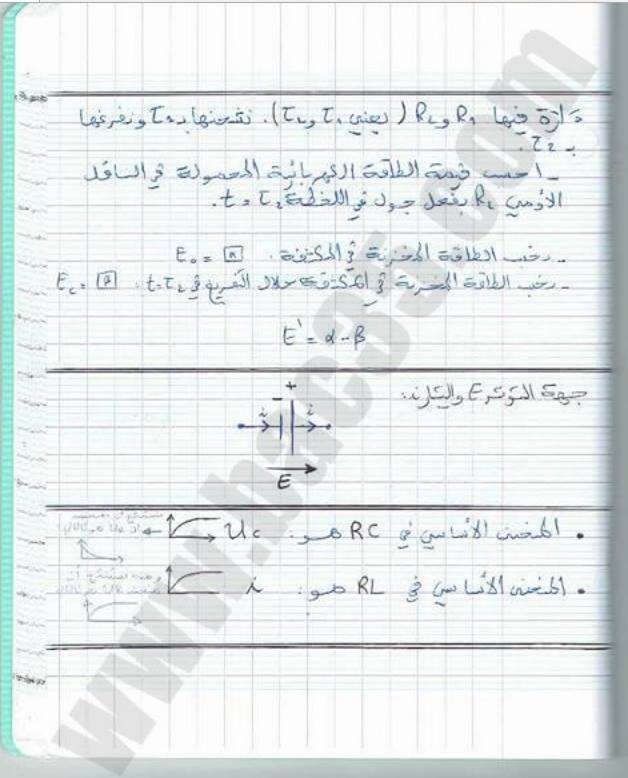 دارة فيها R₁ و R₂ (يعني τ₁ و τ₂). نشحنها بـ τ₁ و نفرغها
بـ τ₂.
- احسب قيمة الطاقة الكهربائية المحمولة في الناقل
الأومي R₂ بفعل جول في اللحظة t = τ₂.
- رخب الطاقة المخزنة في المكثفة. E₀ = α
- رخب الطاقة المخزنة في المكثفة خلال التفريغ في t=τ₂. E_c = β
E' = α - β
جهة التوتر E والتيار i:
- +
i i
E
• المنحنى الأساسي في RC هو: Uc
• المنحنى الأساسي في RL هو: i
www.bac35.com